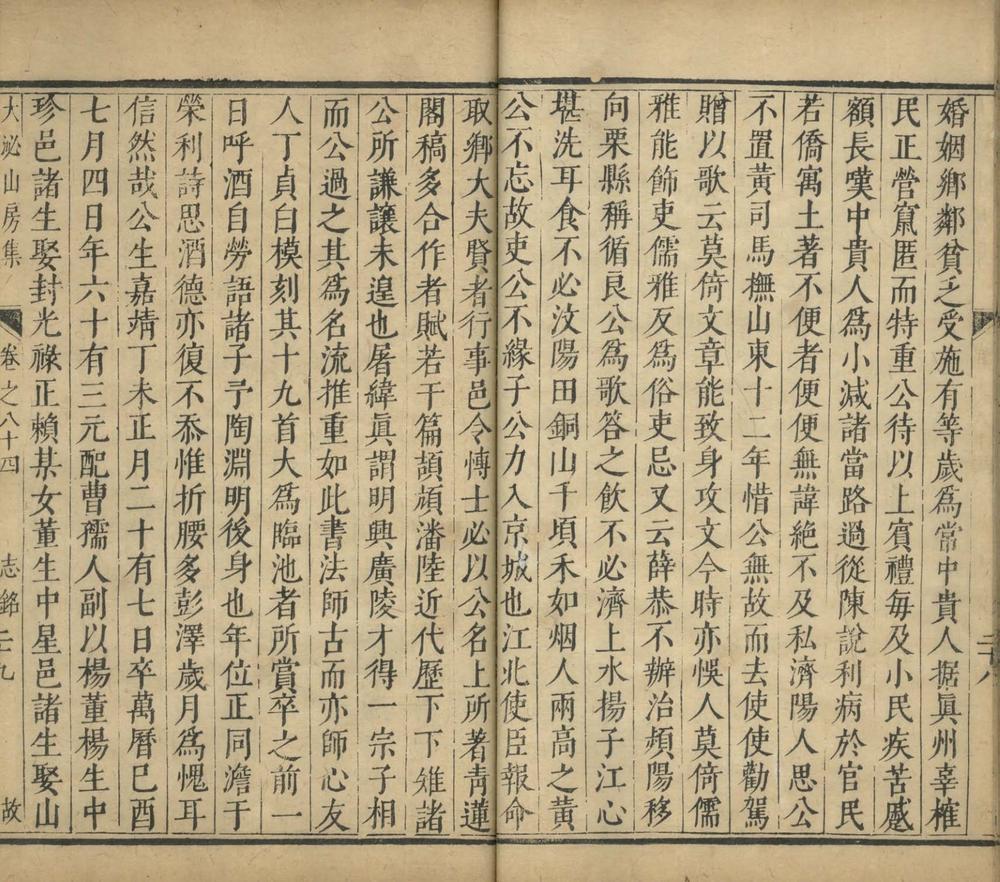 婚姻鄉鄰貧乏受施有等歲爲常中貴人据眞州辜榷
民正營竄匿而特重公待以上賓禮每及小民疾苦蹙
額長嘆中貴人爲小減諸當路過從陳說利病於官民
若僑寓土著不便者便便無諱絶不及私濟陽人思公
不置黃司馬撫山東十二年惜公無故而去使使勸駕
贈以歌云莫倚文章能致身攻文今時亦悞人莫倚儒
雅能飾吏儒雅反爲俗吏忌又云薛恭不辦治頻陽移
向栗縣稱循良公爲歌答之飲不必濟上水揚子江心
堪洗耳食不必汶陽田銅山千頃禾如烟人兩高之黃
公不忘故吏公不緣子公力入京城也江北使臣報命
取鄉大夫賢者行事邑令愽士必以公名上所著靑蓮
閣稿多合作者賦若干篇頡頏潘陸近代歷下下雉諸
公所謙讓未遑也屠緯眞謂明興廣陵才得一宗子相
而公過之其爲名流推重如此書法師古而亦師心友
人丁貞白模刻其十九首大爲臨池者所賞卒之前一
日呼酒自勞語諸子予陶淵明後身也年位正同澹于
榮利詩思酒德亦復不忝惟折腰多彭澤歲月爲愧耳
信然哉公生嘉靖丁未正月二十有七日卒萬曆巳酉
七月四日年六十有三元配曹孺人副以楊董楊生中
珍邑諸生娶封光祿正賴某女董生中星邑諸生娶山
大泌山房集 卷之八十四 志銘 二九 故